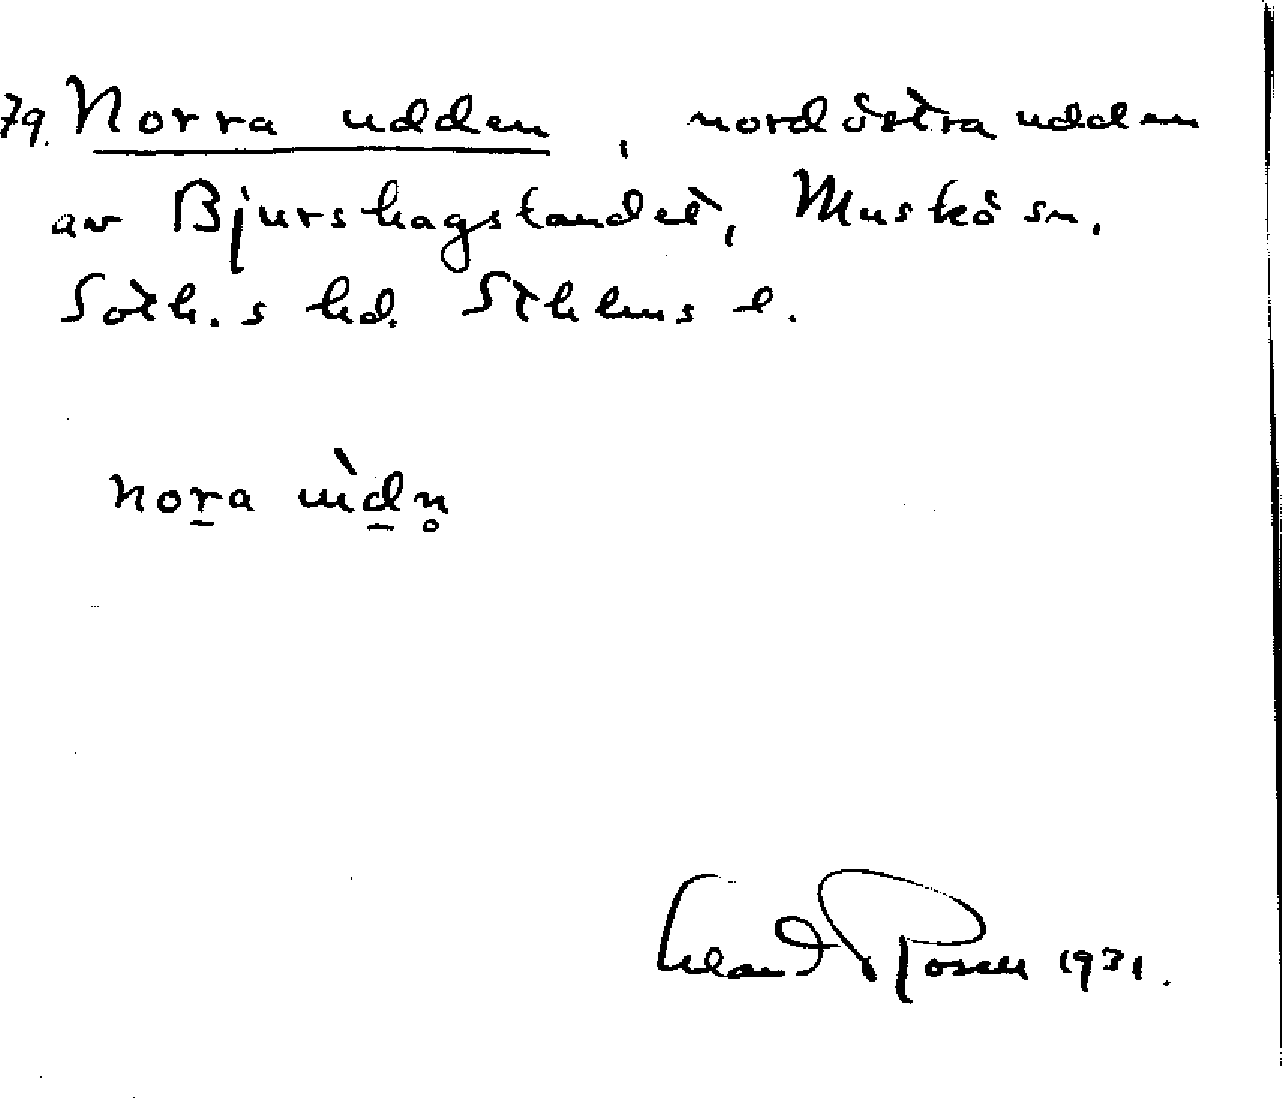 79. Norra udden, nordöstra udden
av Bjurshagslandet, Muskö sn.
Soth.s hd. Sthlms l.
nora ùdn̥
Erland Rosell 1931.